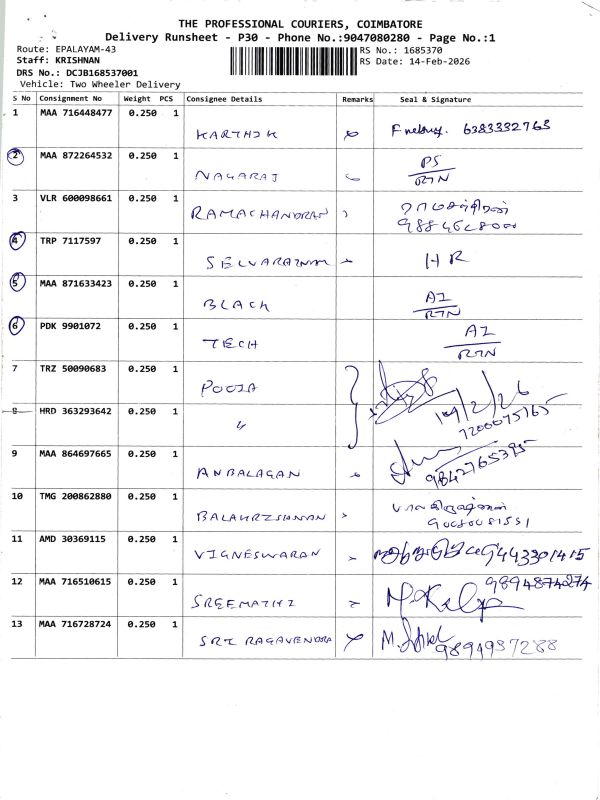 THE PROFESSIONAL COURIERS, COIMBATORE
Delivery Runsheet - P30 - Phone No.:9047080280 - Page No.:1
Route: EPALAYAM-43
RS No.: 1685370
Staff: KRISHNAN
RS Date: 14-Feb-2026
DRS No.: DCJB168537001
Vehicle: Two Wheeler Delivery
S No Consignment No Weight PCS Consignee Details Remarks Seal & Signature
1 MAA 716448477 0.250 1 KARTHIK 6383332763
2 MAA 872264532 0.250 1 NAGARAJ PS
RTN
3 VLR 600098661 0.250 1 RAMACHANDRAN
4 TRP 7117597 0.250 1 HR
5 MAA 871633423 0.250 1 BLACK AI
RTN
6 PDK 9901072 0.250 1 TECH AI
RTN
7 TRZ 50090683 0.250 1 POOJA
8 HRD 363293642 0.250 1 〃 14/2/26
7200075165
9 MAA 864697665 0.250 1 ANBALAGAN
9842765395
10 TMG 200862880 0.250 1 BALAKRISHNAN
11 AMD 30369115 0.250 1 VIGNESWARAN 9443301415
12 MAA 716510615 0.250 1 SREEMATHI 9894874274
13 MAA 716728724 0.250 1 SRI RAGAVENDRA 9894937288